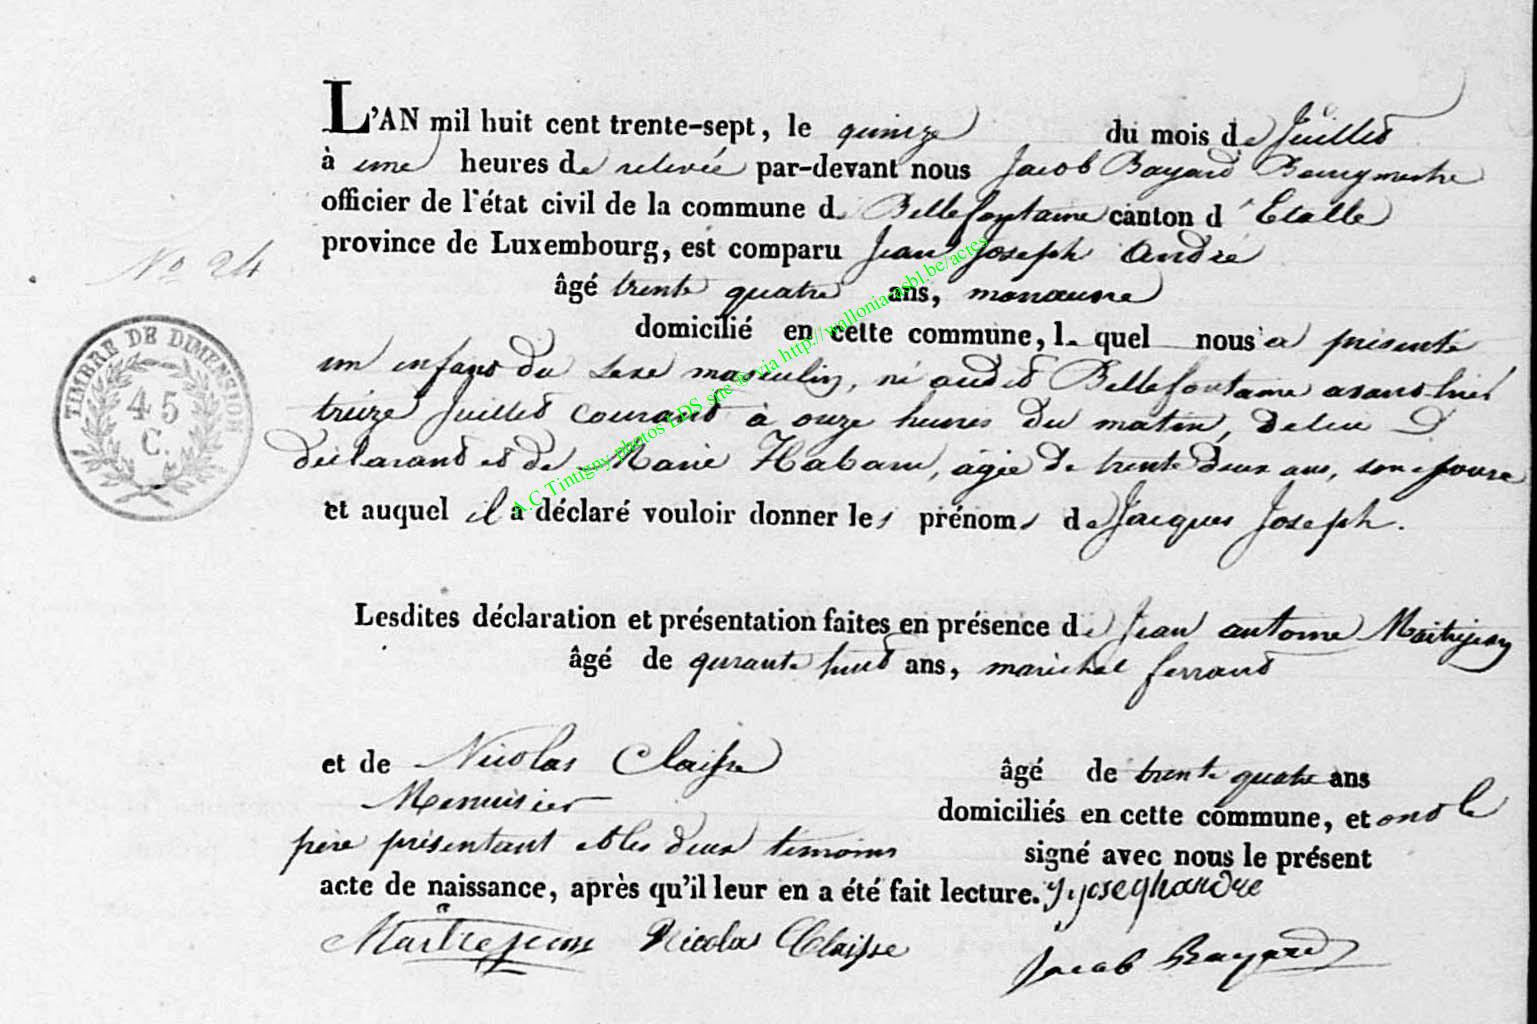 L'AN mil huit cent trente-sept, le quinze du mois de Juillet
à une heures de relevée par-devant nous Jacob Bayard Bourgmestre
officier de l'état civil de la commune de Bellefontaine canton d'Etalle
province de Luxembourg, est comparu Jean Joseph André
N° 24
âgé trente quatre ans, manœuvre
domicilié en cette commune, le quel nous a présenté
TIMBRE DE DIMENSION
45
C.
un enfant du sexe masculin, né audit Bellefontaine avant-hier
treize Juillet courant à onze heures du matin, de lui D
déclarant et de Marie Habran, âgée de trente deux ans, son epouse
et auquel il a déclaré vouloir donner les prénoms de Jacques Joseph.
Lesdites déclaration et présentation faites en présence de Jean antoine Maitrejean
âgé de qurante huit ans, maréchal ferrant
et de Nicolas Claisse âgé de trente quatre ans
Menuisier domiciliés en cette commune, et ont le
père présentant et les deux témoins signé avec nous le présent
acte de naissance, après qu'il leur en a été fait lecture. JJosephandre
Maitrejean Nicolas Claisse Jacob Bayard
A.C Tintigny photos LDS site via http://wallonia-asbl.be/actes